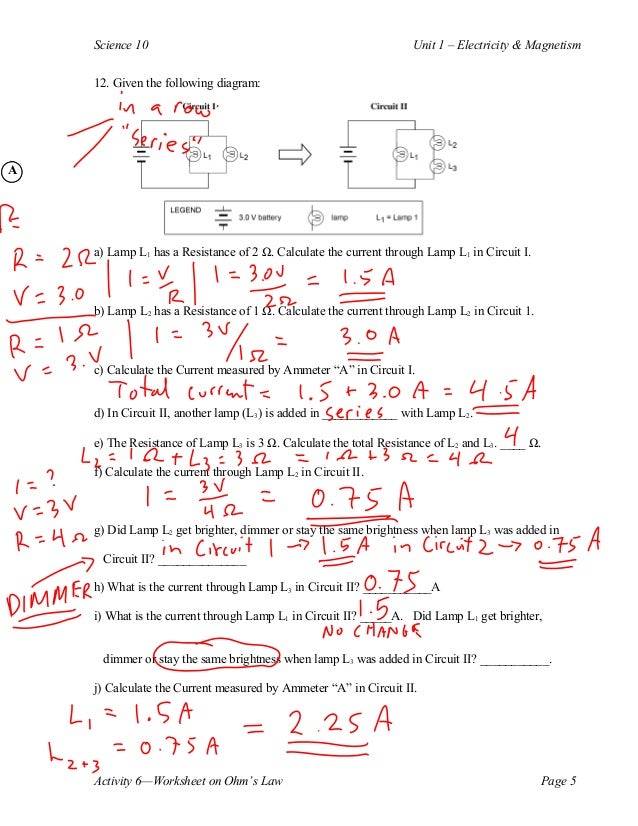 Science 10 Unit 1 – Electricity & Magnetism
12. Given the following diagram:
in a row
"series"
Circuit I
Circuit II
L1 L2
L1 L2
L3
A
LEGEND 3.0 V battery lamp L1 = Lamp 1
a) Lamp L1 has a Resistance of 2 Ω. Calculate the current through Lamp L1 in Circuit I.
R = 2Ω
V = 3.0
I = V/R | I = 3.0V/2Ω = 1.5 A
b) Lamp L2 has a Resistance of 1 Ω. Calculate the current through Lamp L2 in Circuit 1.
R = 1Ω
V = 3.V
I = 3V/1Ω = 3.0 A
c) Calculate the Current measured by Ammeter “A” in Circuit I.
Total current = 1.5 + 3.0 A = 4.5 A
d) In Circuit II, another lamp (L3) is added in series with Lamp L2.
e) The Resistance of Lamp L3 is 3 Ω. Calculate the total Resistance of L2 and L3. 4 Ω.
L2 = 1Ω + L3 = 3Ω = 1Ω + 3Ω = 4Ω
f) Calculate the current through Lamp L2 in Circuit II.
I = ?
V = 3V
R = 4Ω
I = 3V/4Ω = 0.75 A
g) Did Lamp L2 get brighter, dimmer or stay the same brightness when lamp L3 was added in
in Circuit 1 → 1.5 A in Circuit 2 → 0.75 A
Circuit II? _______________
DIMMER
h) What is the current through Lamp L3 in Circuit II? 0.75 A
i) What is the current through Lamp L1 in Circuit II? 1.5 A. Did Lamp L1 get brighter,
NO CHANGE
dimmer or stay the same brightness when lamp L3 was added in Circuit II? ____________.
j) Calculate the Current measured by Ammeter “A” in Circuit II.
L1 = 1.5 A
L2+3 = 0.75 A
= 2.25 A
Activity 6—Worksheet on Ohm’s Law Page 5